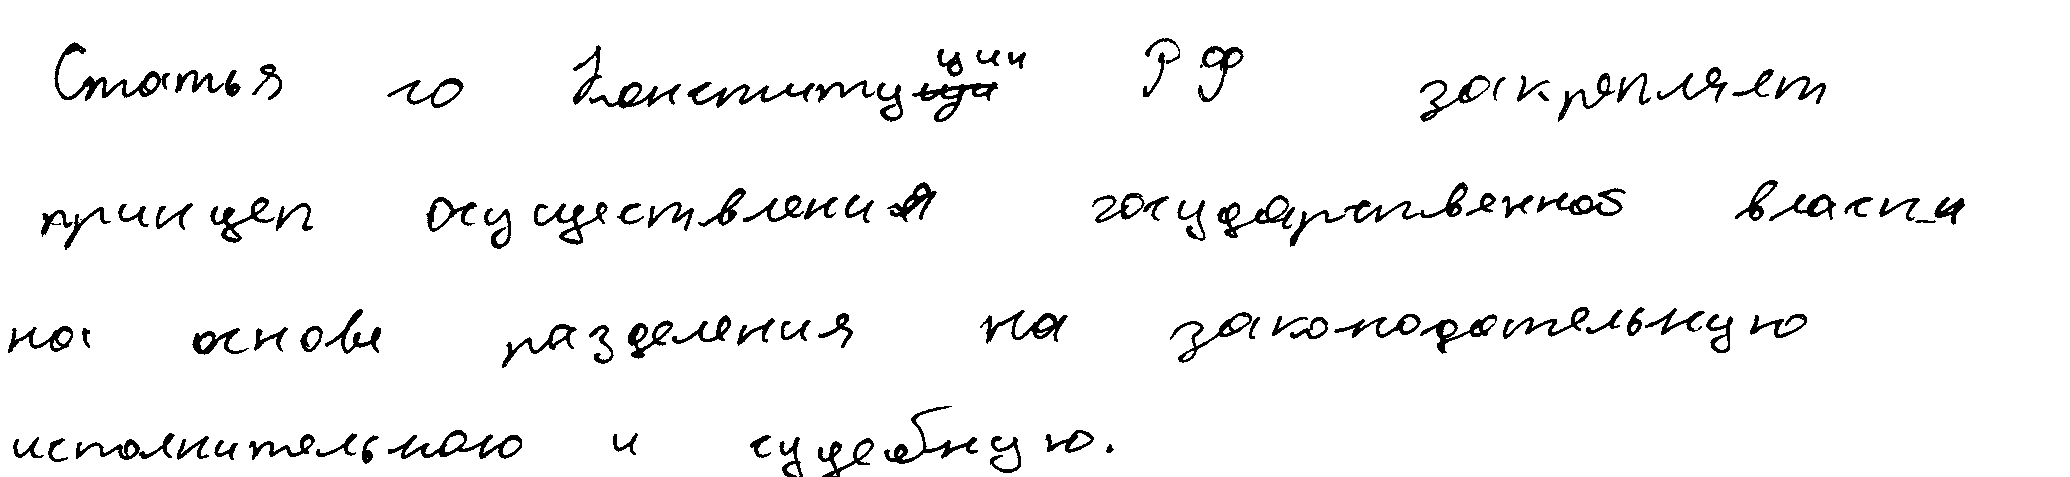 Статья 10 Конституции РФ закрепляет
принцеп осуществления государственной власти
на основе разделения на законодательную
исполнительною и судебную.